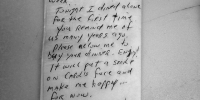 Tonight I dined alone
for the first time.
You remind me of
us many years ago.
Please allow me to
buy your dinner. Enjoy!
It will put a smile
on Carol's face and
make me happy...
for now.